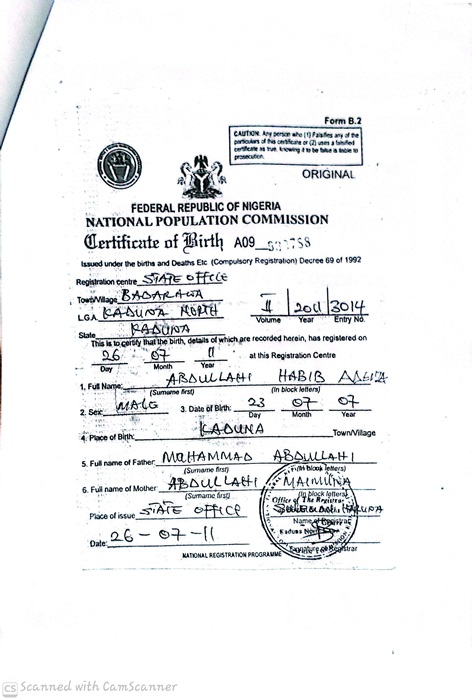 Form B.2
CAUTION: Any person who (1) Falsifies any of the
particulars of this certificate or (2) uses a falsified
certificate as true, knowing it to be false is liable to
prosecution.
ORIGINAL
FEDERAL REPUBLIC OF NIGERIA
NATIONAL POPULATION COMMISSION
Certificate of Birth A09
Issued under the births and Deaths Etc (Compulsory Registration) Decree 69 of 1992
Registration centre STATE OFFICE
Town/Village BADARAWA
L.G.A KADUNA NORTH II 2011 3014
Volume Year Entry No.
State KADUNA
This is to certify that the birth, details of which are recorded herein, has registered on
26 07 11 at this Registration Centre
Day Month Year
1. Full Name: ABDULLAHI HABIB
(Surname first) (In block letters)
2. Sex: MALE 3. Date of Birth: 23 07 07
Day Month Year
4. Place of Birth: KADUNA Town/Village
5. Full name of Father: MUHAMMAD ABDULLAHI
(Surname first) (In block letters)
6. Full name of Mother: ABDULLAHI MAIMUNA
(Surname first) (In block letters)
Office of The Registrar
Place of issue STATE OFFICE
Name of Registrar
Kaduna North
Date: 26-07-11
Signature of Registrar
NATIONAL REGISTRATION PROGRAMME
CS Scanned with CamScanner